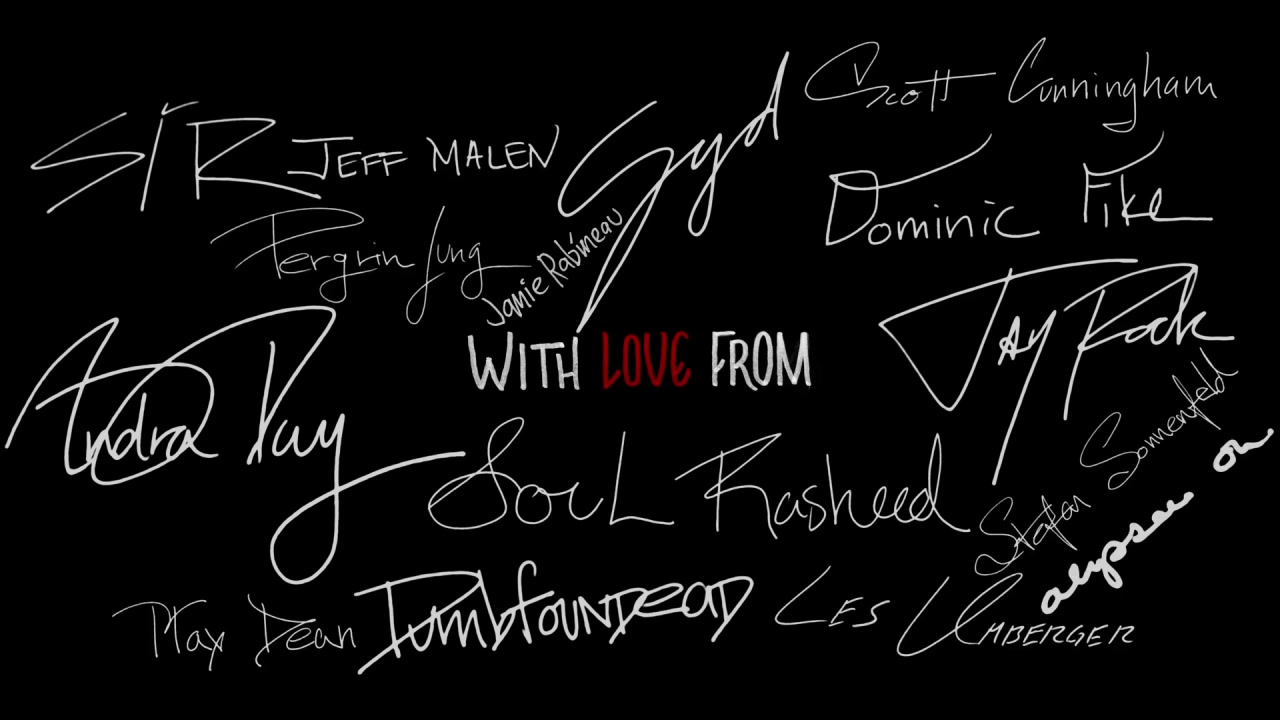 Scott Cunningham
SiR
JEFF MALEN
Syd
Dominic Fike
Pergrin Jung
Jamie Rabineau
JAY Rock
WITH LOVE FROM
Andra Day
Stefan Sonnenfeld
SOUL Rasheed
alyssa
Max Dean
DumbfounDEAD
LES UMBERGER